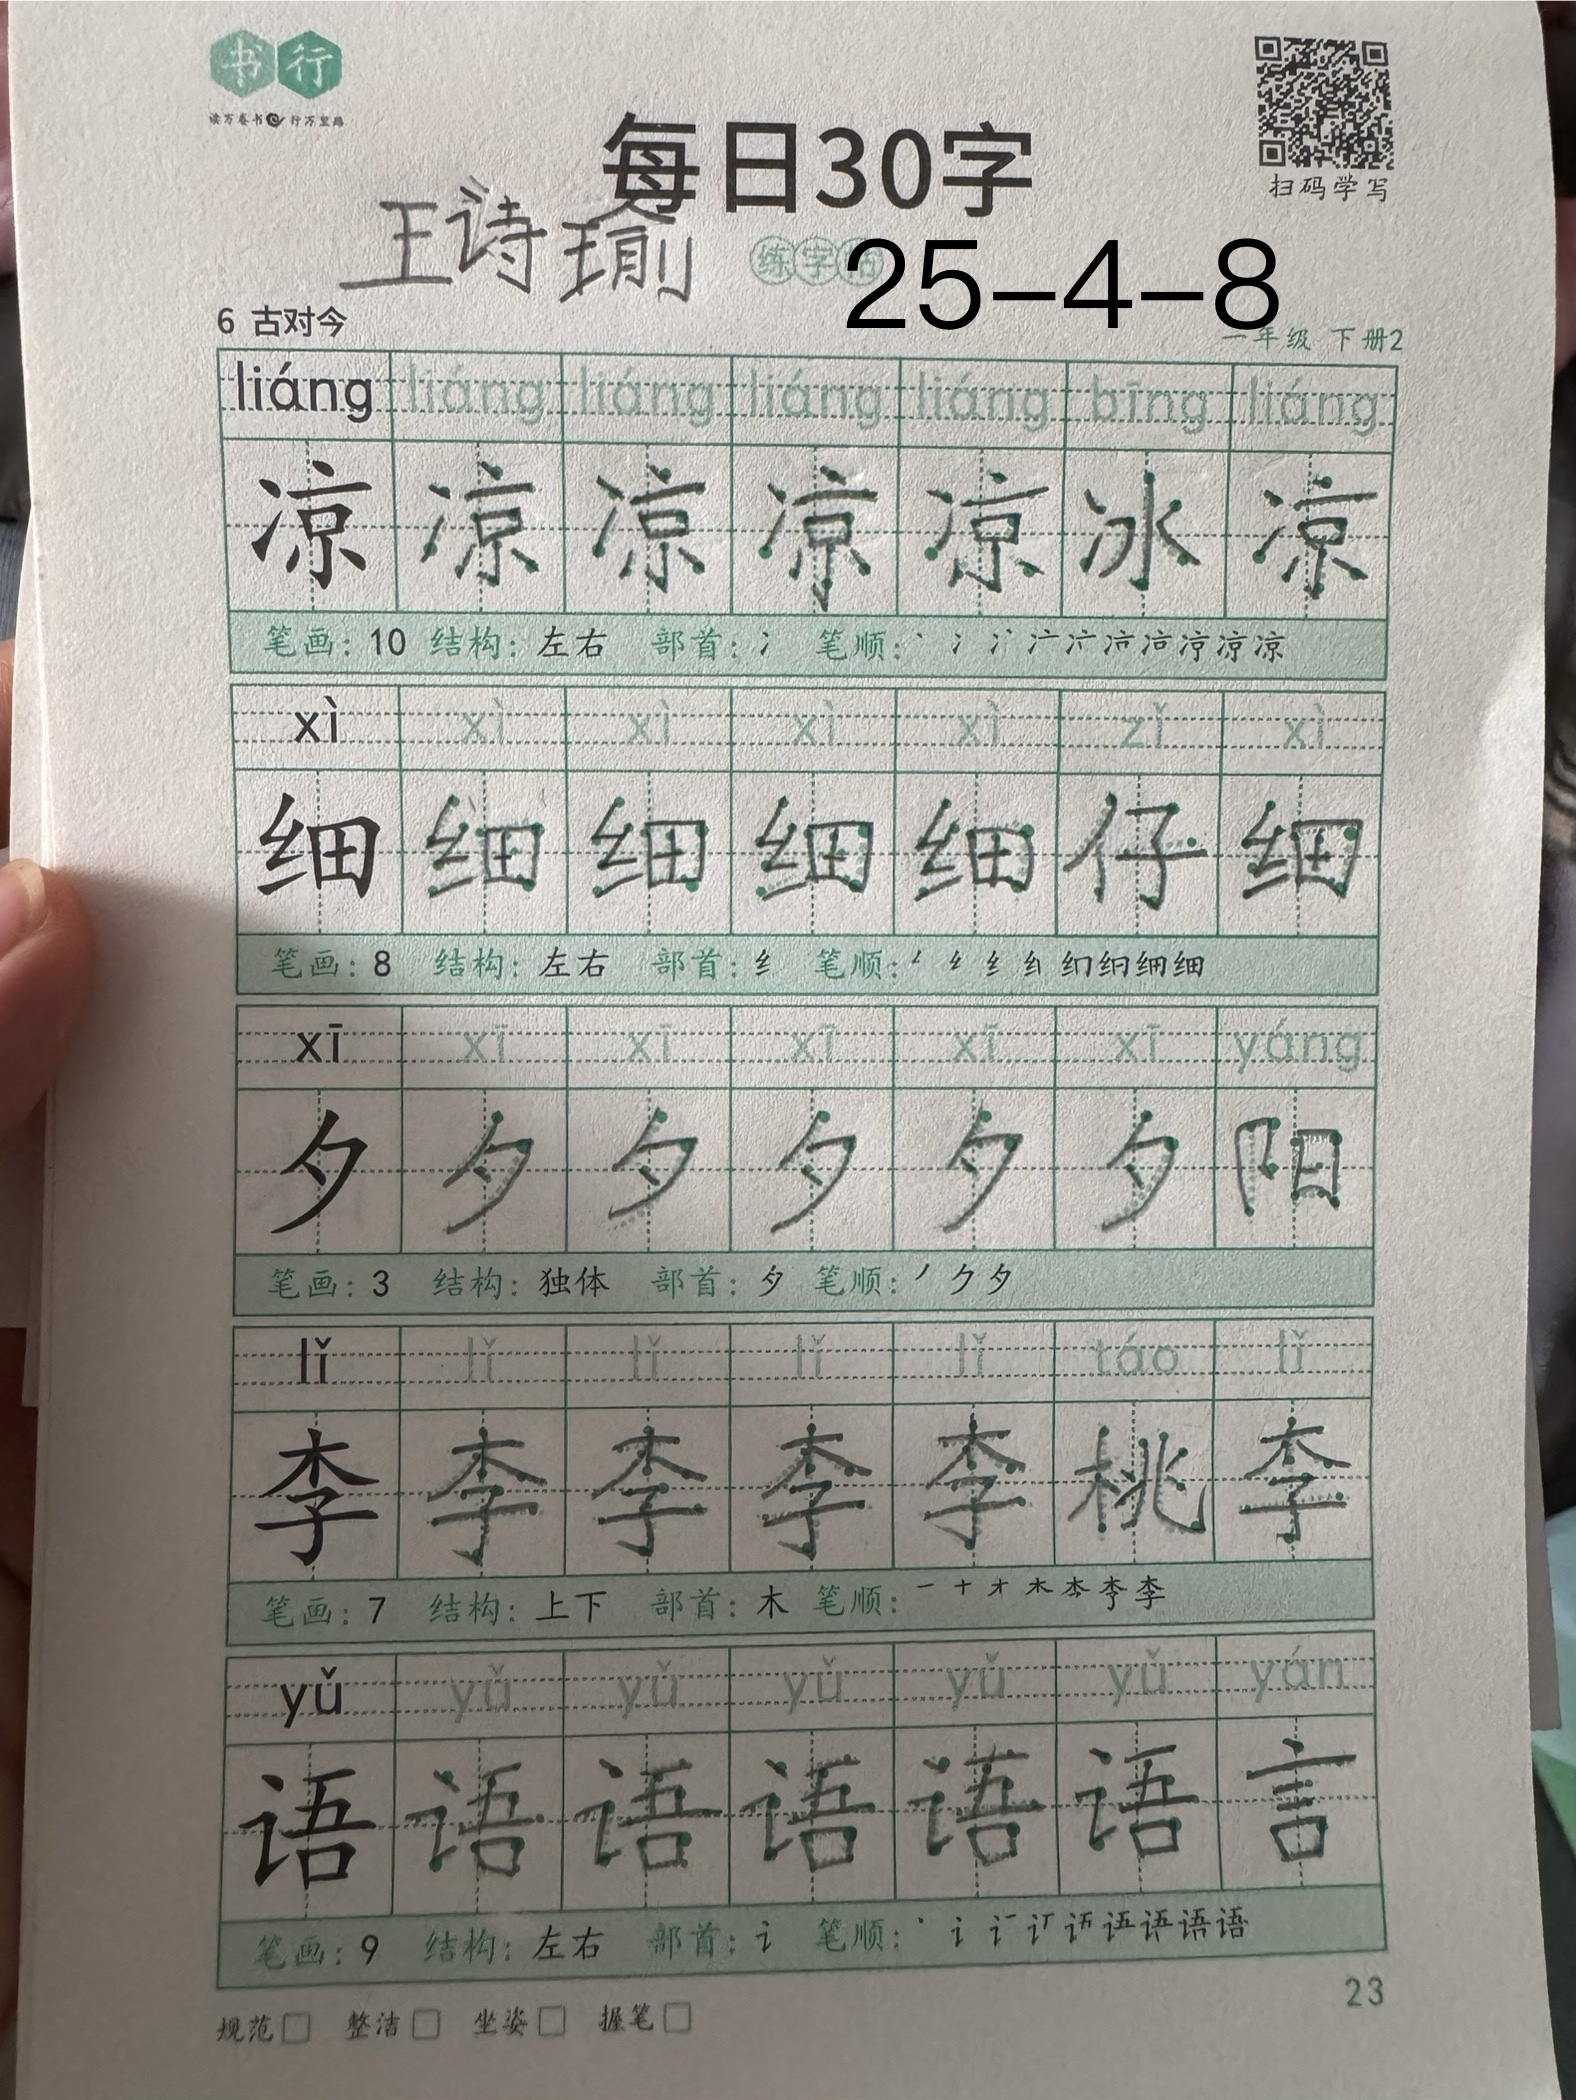 书行
读万卷书 行万里路
扫码学写
每日30字
王诗瑜
练字帖
25-4-8
6 古对今
一年级 下册2
liáng liáng liáng liáng liáng bīng liáng
凉 凉 凉 凉 凉 冰 凉
笔画：10 结构：左右 部首：冫 笔顺：
xì xì xì xì xì zǐ xì
细 细 细 细 细 仔 细
笔画：8 结构：左右 部首：纟 笔顺：
xī xī xī xī xī xī yáng
夕 夕 夕 夕 夕 夕 阳
笔画：3 结构：独体 部首：夕 笔顺：
lǐ lǐ lǐ lǐ lǐ táo lǐ
李 李 李 李 李 桃 李
笔画：7 结构：上下 部首：木 笔顺：
yǔ yǔ yǔ yǔ yǔ yǔ yán
语 语 语 语 语 语 言
笔画：9 结构：左右 部首：讠 笔顺：
23
规范□ 整洁□ 坐姿□ 握笔□